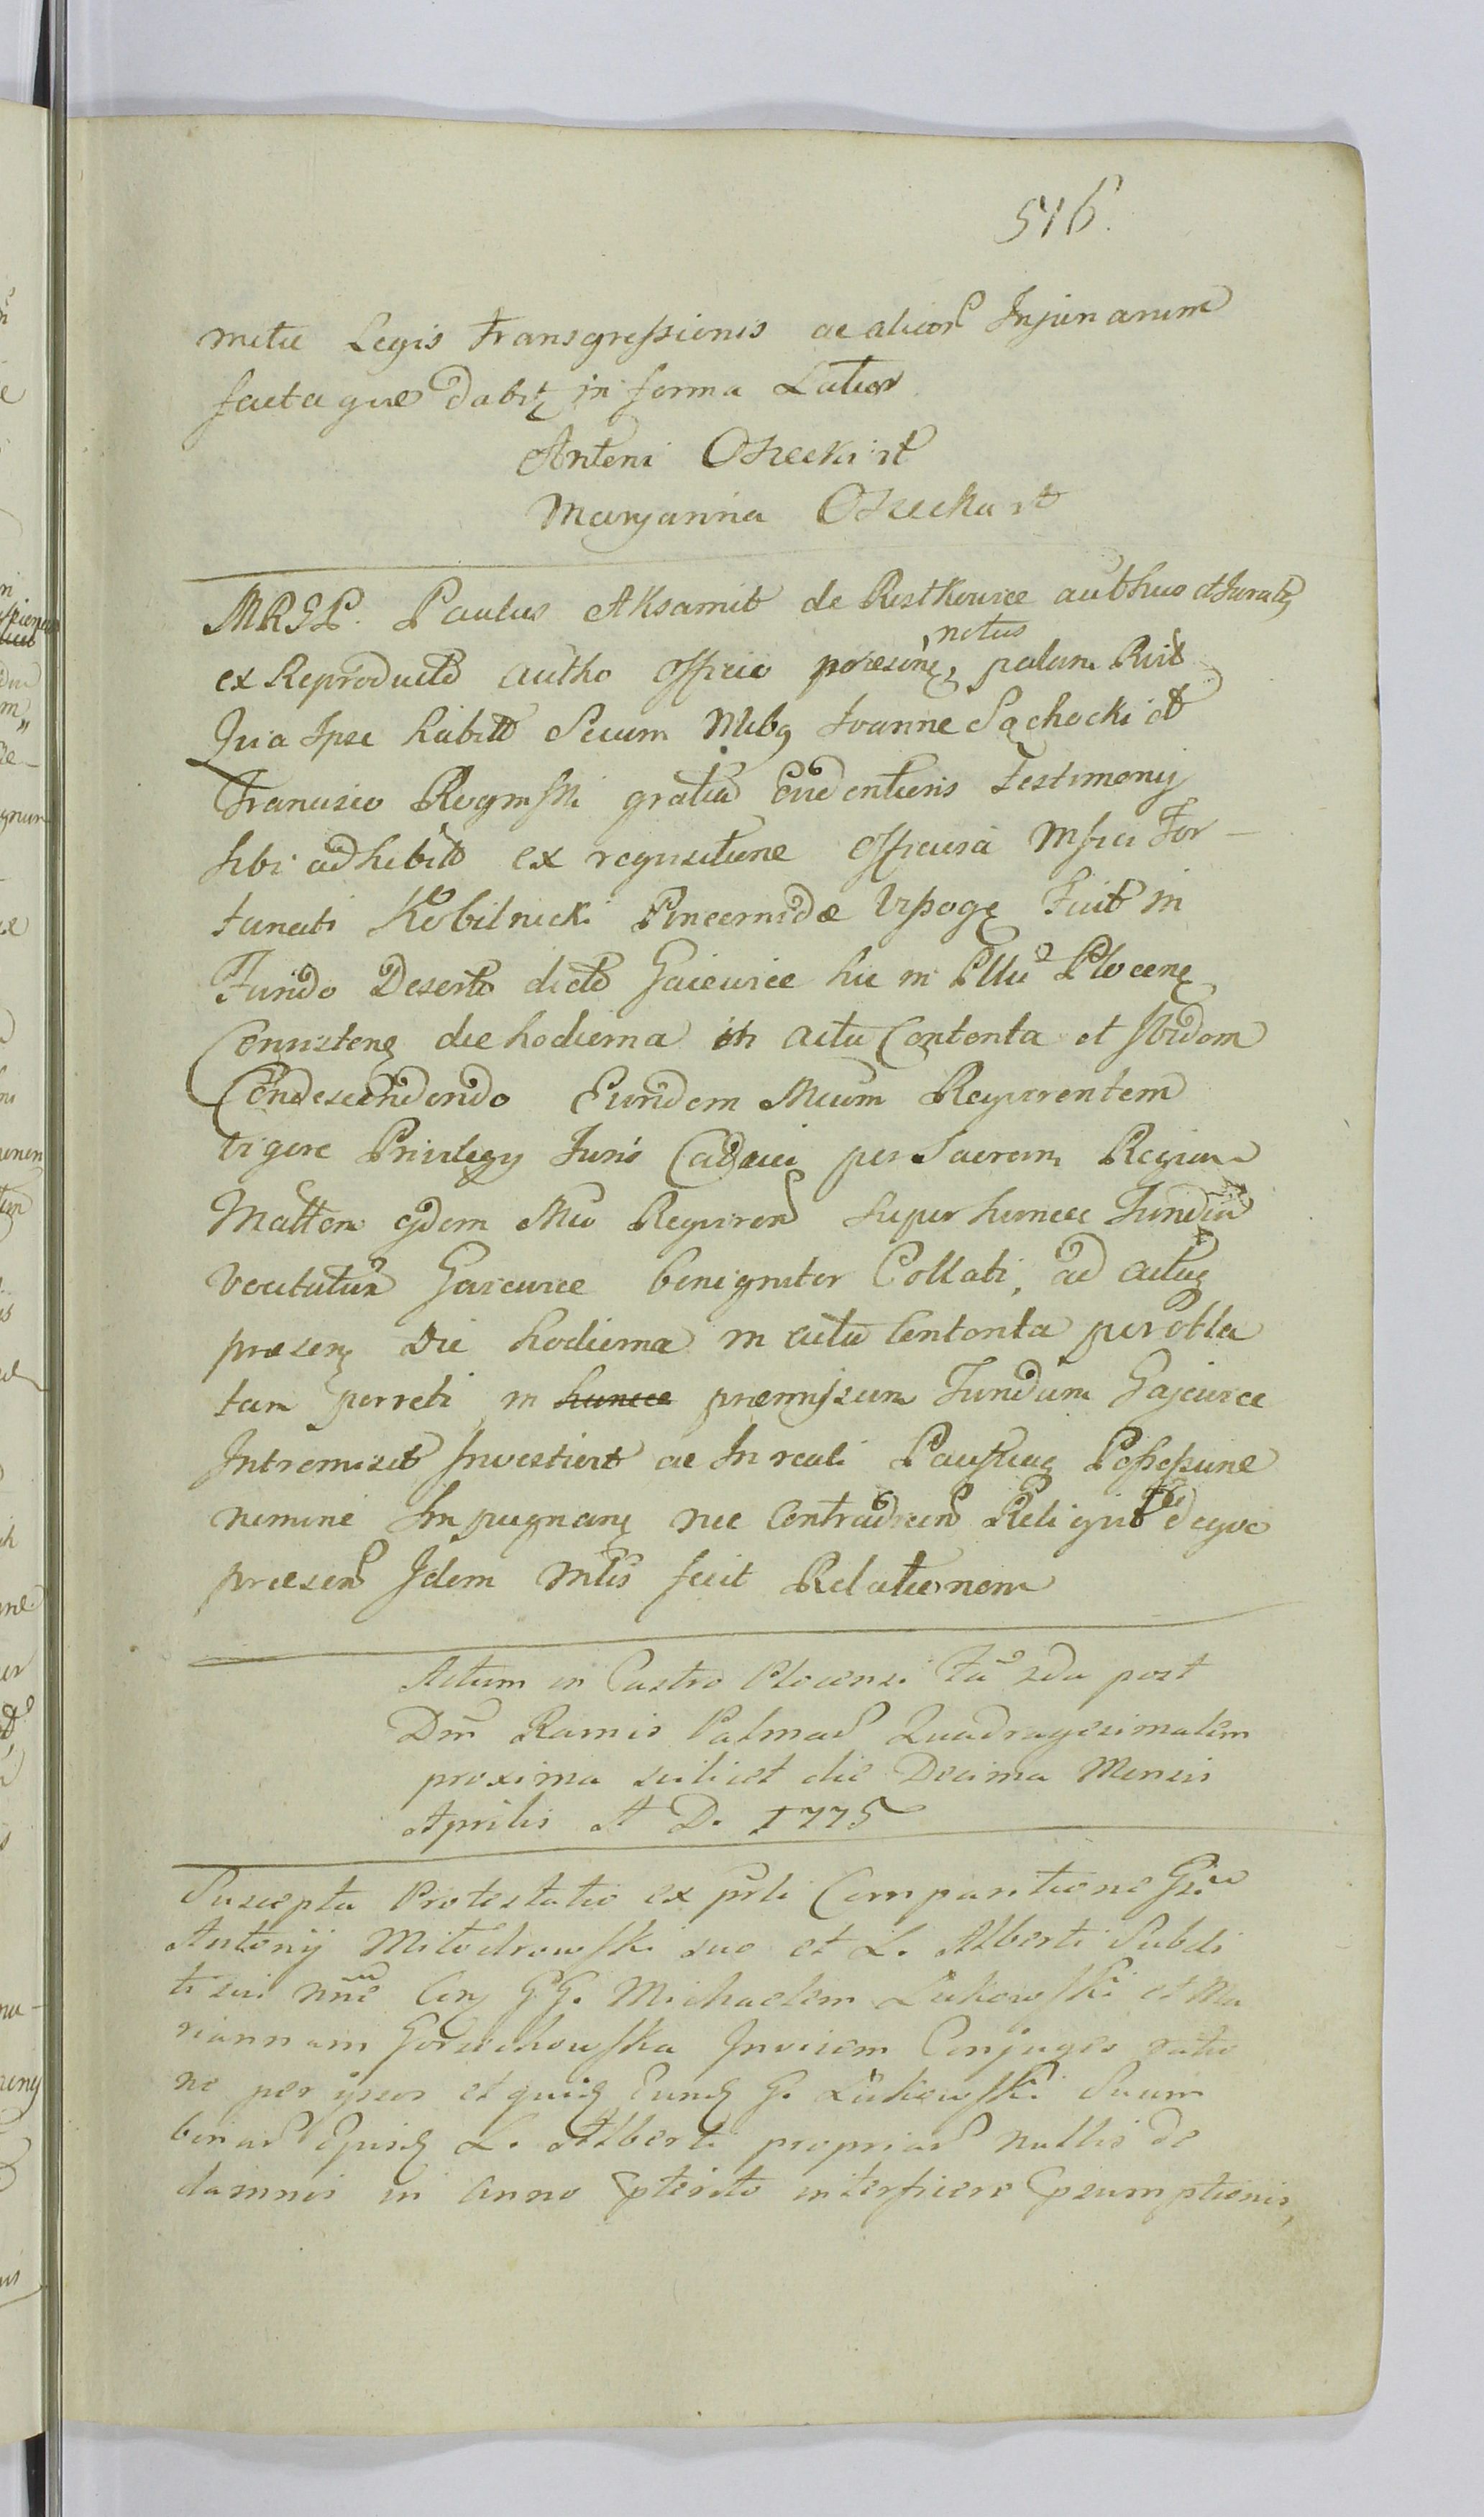 516.
metu Legis Transgressionis ac alior Injuriarum
factaque dabit in forma Latior
Antoni Osiecki
Maryanna Osiecka
MRGL. Paulus Aksamit de Rostkowice authus et Juratus
ex Reproducto autho Officio præsens, notus palam Rvit
Quia Ipse habitis Secum Nlibus Joanne Sąchocki et
Francisco Rogowski gratia Evidentioris Testimonij
sibi adhibitis ex requisitione Officiosa Mfici For-
tunati Kobilnicki Pincernidæ Vyssogę fuit in
Fundo Deserto dicto Gaiewice hic in Pllu Plocenę
Consistenę die hodierna in actu Contenta et Ibidem
Condescendendo Eundem Mcum Requirentem
vigore Privilegij Juris Caduci per Sacram Regiam
Mattem eidem Mco Requiren super huncce Fundum
vocitatum Gaiewice benigniter Collati, ad actum
præsenę Die hodierna in actu Contenta per obla
tam porrecti, in huncce præmissum Fundum Gajewice
Intromisit Investivit ac In reali Possessione
nemine Impugnanę nec Contradicen Reliquit deque
præsen Idem Mlis fecit Relationem
Actum in Castro Plocensi Fa 2da post
Dm Ramis Palmar Quadragesimalem
proxima scilicet die Decima Mensis
Aprilis A D. 1775
Suscepta Protestatio ex prli Comparitione Gsi
Antonij Milodrowski suo et L. Alberti Subdi
ti sui nne Con GG. Michaelem Łukowski et Ma
riannam Gorzechowska Invicem Conjuges ratio
ne per ipsos et quidę Eundę G. Łukowski Suum
binar Ejusdę L. Alberti propriar nullis de
damnis in anno pterito interficere psumptionis,